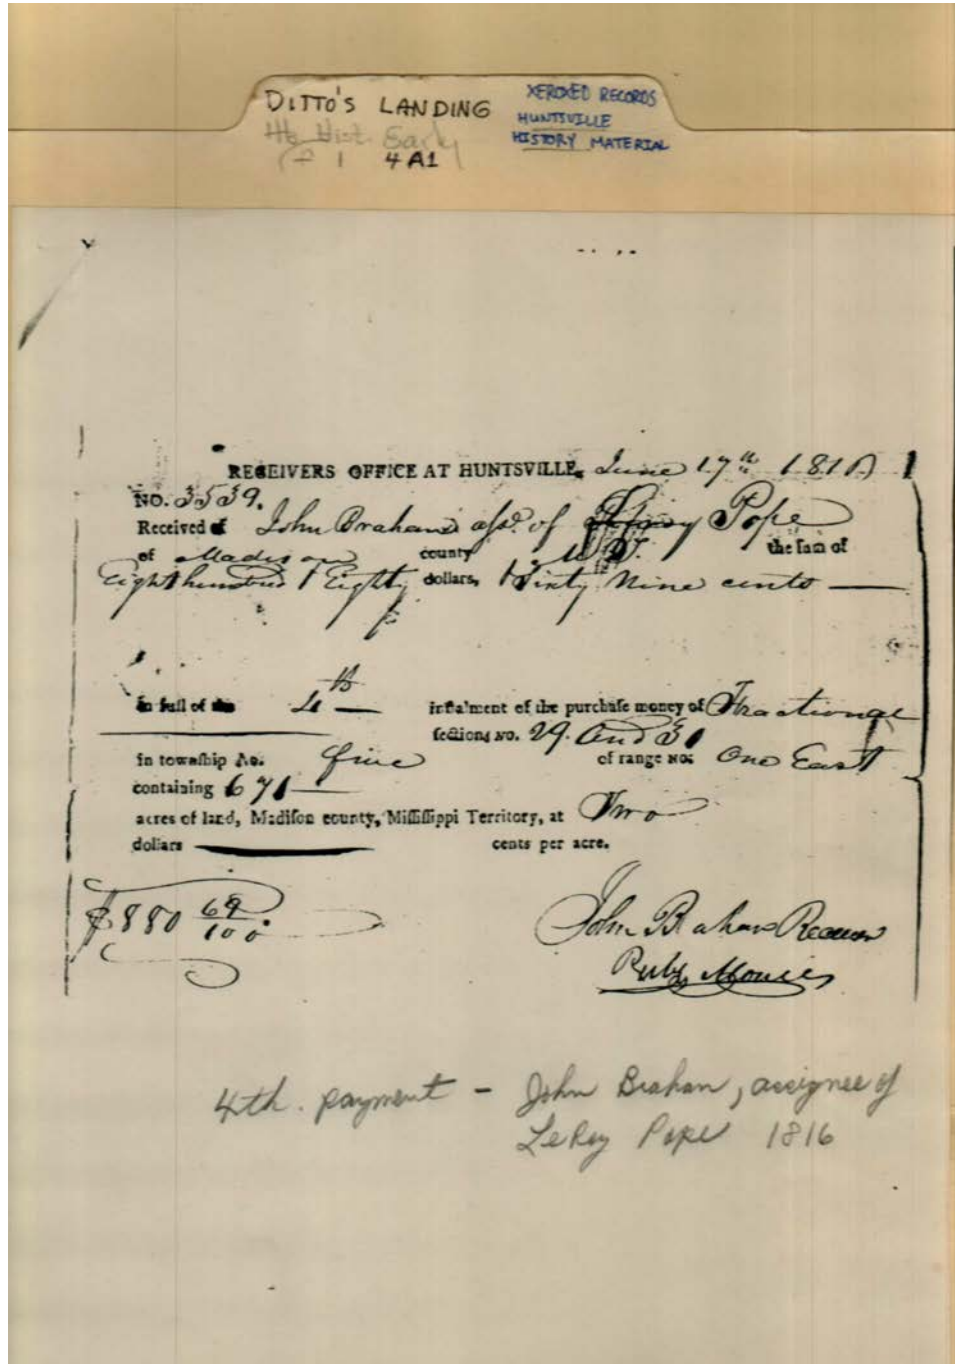 DITTO'S LANDING
XEROXED RECORDS
HUNTSVILLE
HISTORY MATERIAL
Hist. Early
4A1
RECEIVERS OFFICE AT HUNTSVILLE, June 17th 181
NO. 3539.
Received of John Brahan asse. of Leroy Pope
of Madison county M. T. the sum of
Eight hundred & Eighty dollars, & Sixty Nine cents
in full of the 4th instalment of the purchase money of Fractional
sections NO. 29. And 30
in township No. five of range NO: One East
containing 671
acres of land, Madison county, Mississippi Territory, at Two
dollars cents per acre.
$880 69/100
John Brahan Receiver
Publ. Monies
4th. payment - John Brahan, assignee of
LeRoy Pope 1816